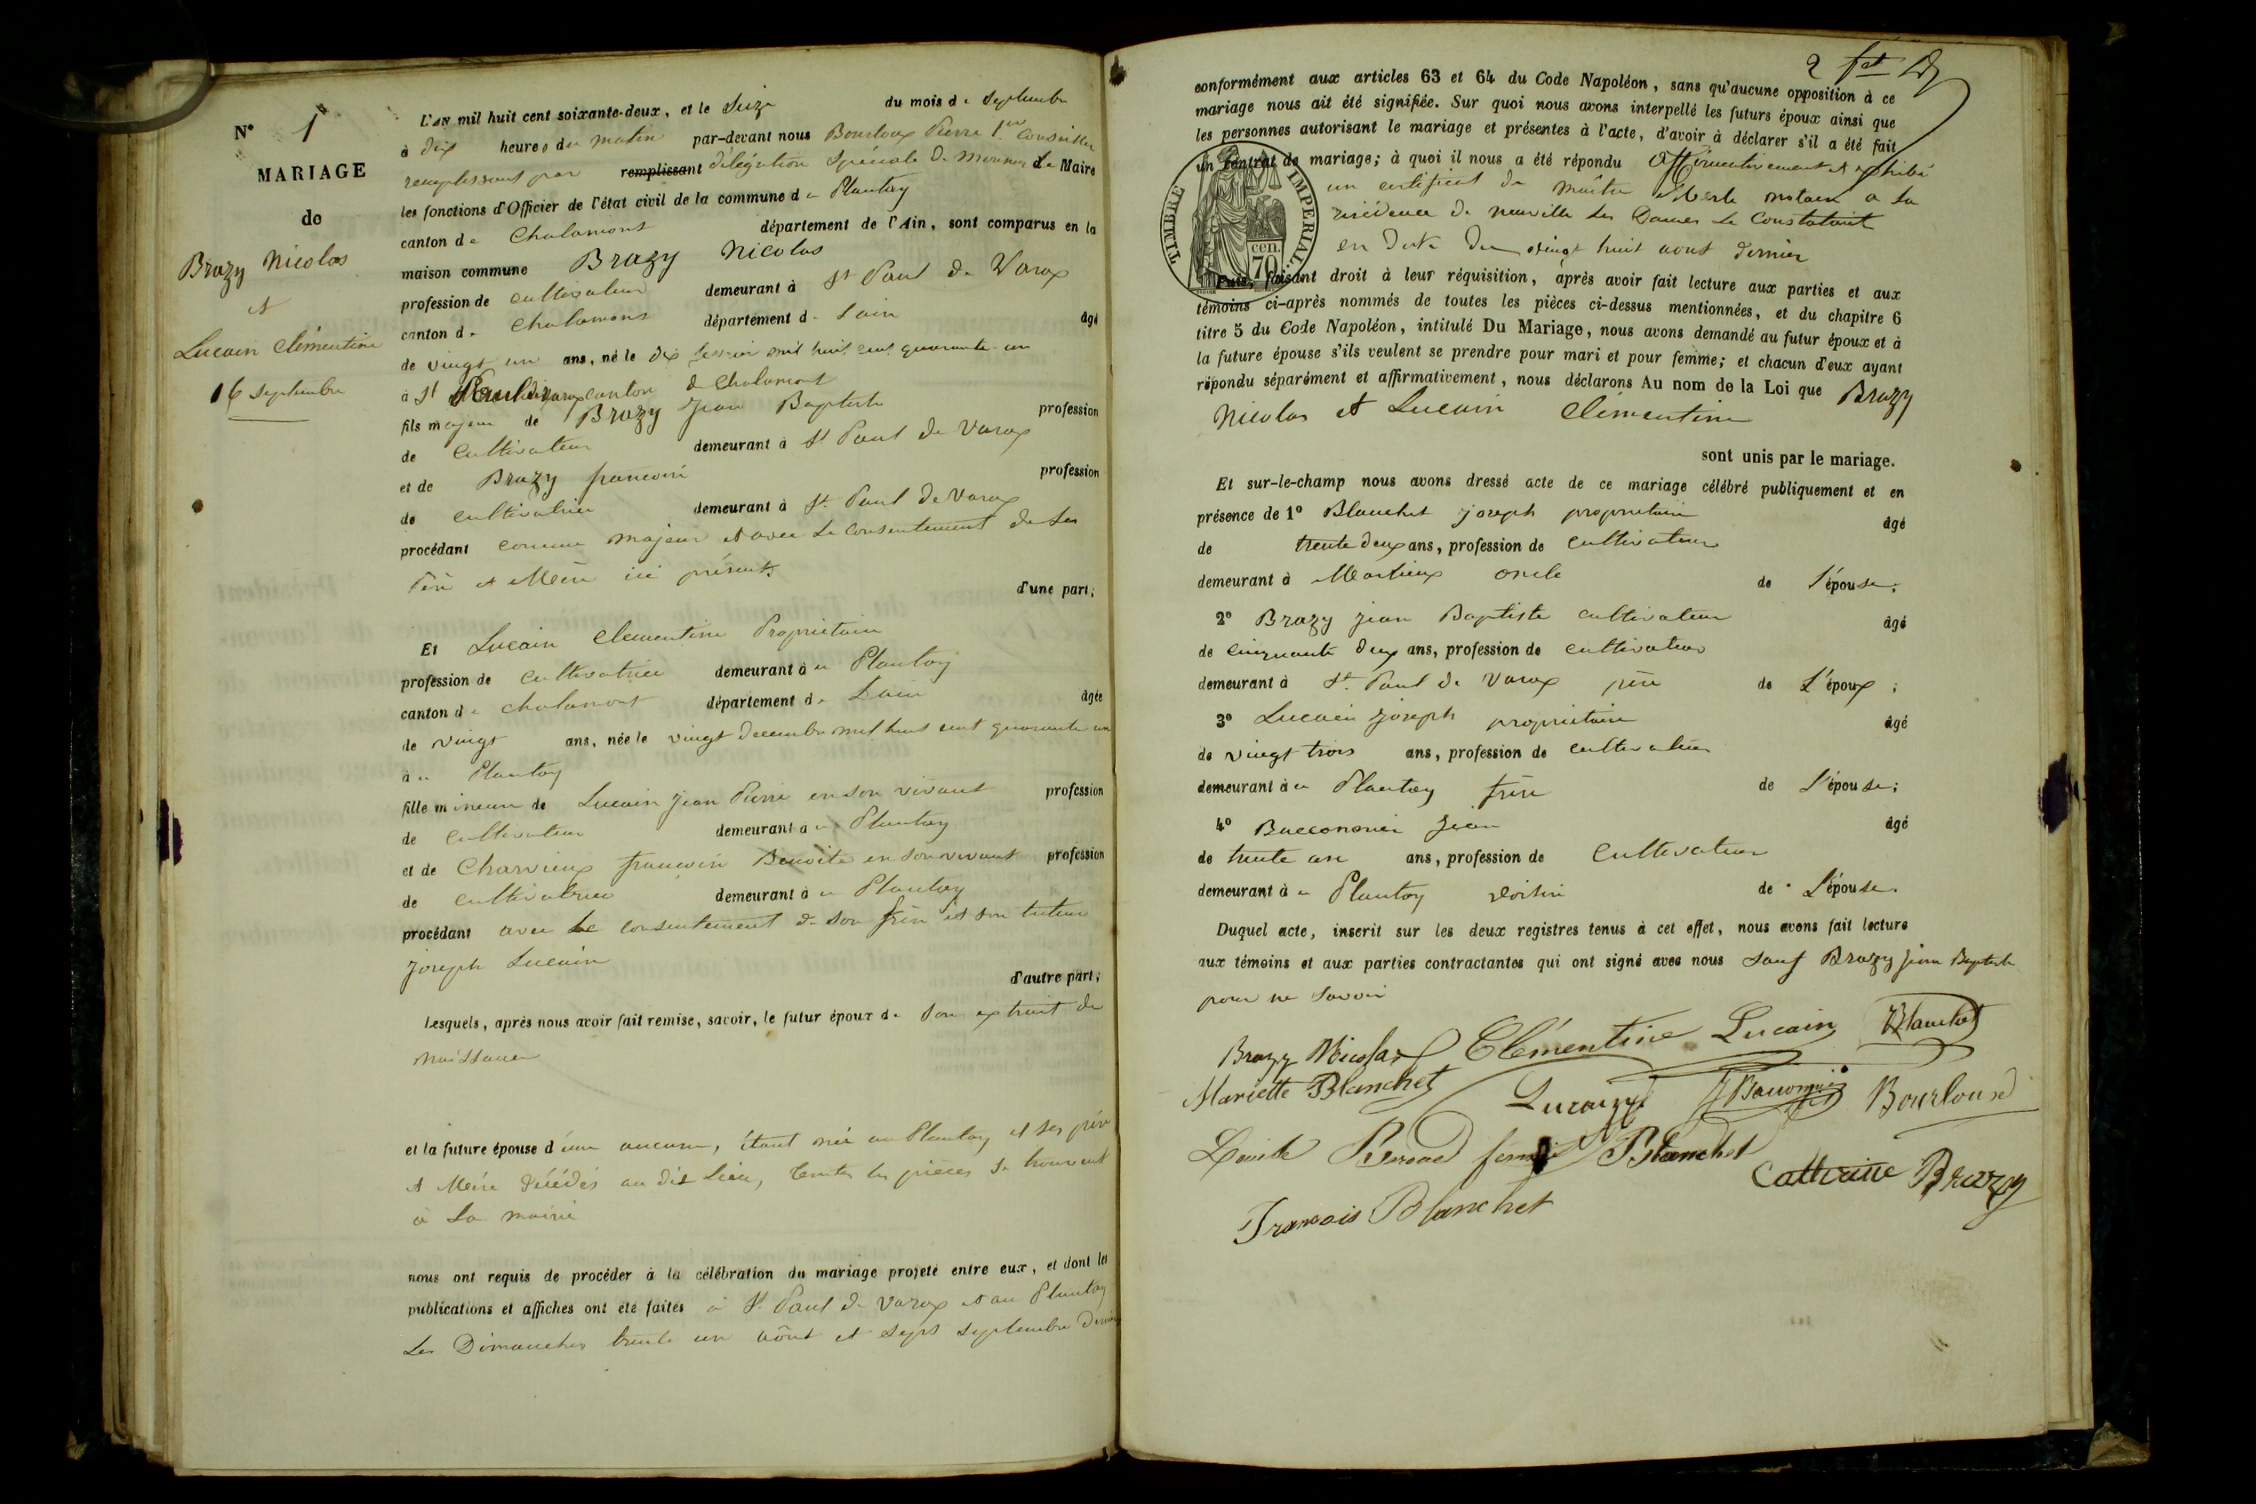 N° 1
MARIAGE
de
Brazy Nicolas
et
Lucain Clémentine
16 septembre
L'AN mil huit cent soixante-deux, et le Seize du mois de Septembre
à dix heures du matin par-devant nous Bourloux Pierre 1er Conseiller
remplissant par remplissant délégation spéciale de Monsieur Le Maire
les fonctions d'Officier de l'état civil de la commune du Plantay
canton de Chalamont département de l'Ain, sont comparus en la
maison commune Brazy Nicolas
profession de cultivateur demeurant à St Paul de Varax
canton de Chalamont département de Lain âgé
de vingt un ans, né le dix février mil huit cent quarante un
à St Paul de Varax canton de Chalamont
fils majeur de Brazy Jean Baptiste profession
de cultivateur demeurant à St Paul de Varax
et de Brazy francoise profession
de cultivatrice demeurant à St Paul de Varax
procédant comme majeur et avec le consentement de ses
Père et Mère ici présents d'une part;
Et Lucain Clementine Propriétaire
profession de cultivatrice demeurant à u Plantay
canton de chalamont département de Lain âgée
de vingt ans, née le vingt decembre mil huit cent quarante un
à u Plantay
fille mineure de Lucain Jean Pierre en son vivant profession
de cultivateur demeurant à u Plantay
et de Charvieux francoise Benoite en son vivant profession
de cultivatrice demeurant à u Plantay
procédant avec le consentement de son frère et son tuteur
Joseph Lucain
d'autre part;
Lesquels, après nous avoir fait remise, savoir, le futur époux de son extrait de
naissance
et la future épouse d'une aucune, étant née au Plantay et ses père
et Mère décédés au dit Lieu, toutes les pièces se trouvent
à la mairie
nous ont requis de procéder à la célébration du mariage projeté entre eux, et dont les
publications et affiches ont été faites à St Paul de Varax et au Plantay
Les Dimanches trente un août et sept septembre dernier
2
conformément aux articles 63 et 64 du Code Napoléon, sans qu'aucune opposition à ce
mariage nous ait été signifiée. Sur quoi nous avons interpellé les futurs époux ainsi que
les personnes autorisant le mariage et présentes à l'acte, d'avoir à déclarer s'il a été fait
un contrat de mariage; à quoi il nous a été répondu affirmativement et exhibé
un certificat de maître Merle notaire a la
résidence de neuville les Dames le constatant
en date du vingt huit aout dernier
TIMBRE IMPERIAL
70 cen.
Puis, faisant droit à leur réquisition, après avoir fait lecture aux parties et aux
témoins ci-après nommés de toutes les pièces ci-dessus mentionnées, et du chapitre 6
titre 5 du Code Napoléon, intitulé Du Mariage, nous avons demandé au futur époux et à
la future épouse s'ils veulent se prendre pour mari et pour femme; et chacun d'eux ayant
répondu séparément et affirmativement, nous déclarons Au nom de la Loi que Brazy
Nicolas et Lucain Clémentine
sont unis par le mariage.
Et sur-le-champ nous avons dressé acte de ce mariage célébré publiquement et en
présence de 1° Blanchet joseph propriétaire âgé
de trente deux ans, profession de cultivateur
demeurant à Marlieux oncle de l'épouse;
2° Brazy jean Baptiste cultivateur âgé
de cinquante deux ans, profession de cultivateur
demeurant à St Paul de Varax père de L'époux;
3° Lucain Joseph propriétaire âgé
de vingt trois ans, profession de cultivateur
demeurant à u Plantay frère de L'épouse;
4° Bacconnier Jean âgé
de trente un ans, profession de Cultivateur
demeurant à u Plantay voisin de L'épouse.
Duquel acte, inscrit sur les deux registres tenus à cet effet, nous avons fait lecture
aux témoins et aux parties contractantes qui ont signé avec nous sauf Brazy Jean Baptiste
pour ne savoir
Brazy Nicolas Clémentine Lucain Blanchet
Mariette Blanchet Lucain J Bacconnier Bourloux
femme Blanchet
Catherine Brazy
Francois Blanchet